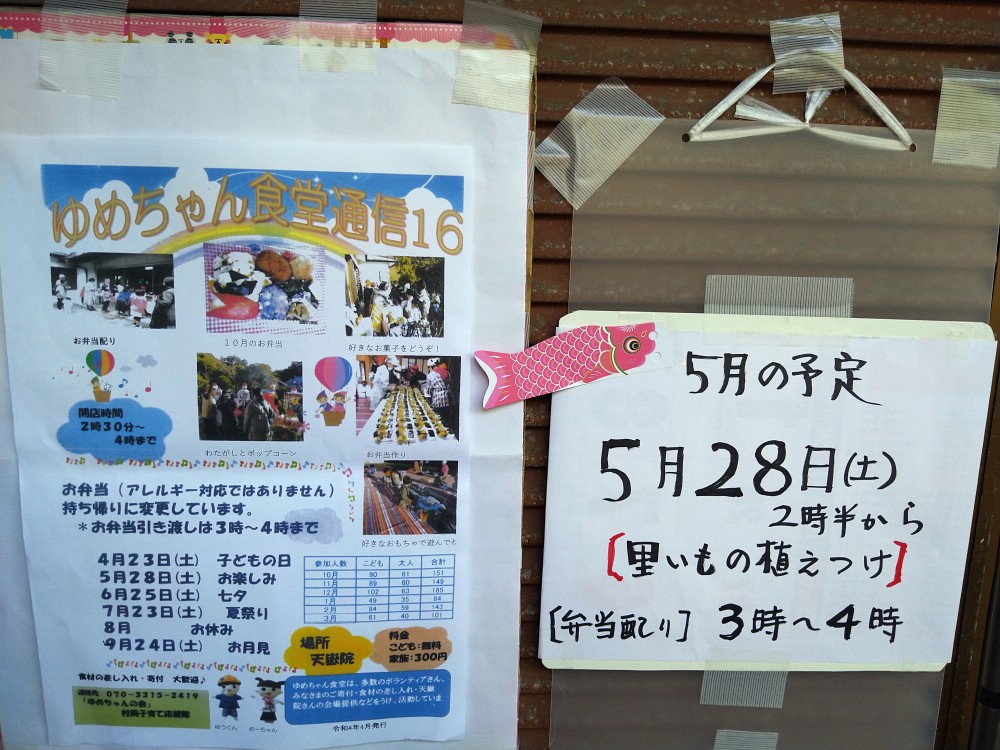 ゆめちゃん食堂通信16
お弁当配り
10月のお弁当
好きなお菓子をどうぞ!
開店時間
2時30分～
4時まで
わたがしとポップコーン
お弁当作り
好きなおもちゃで遊んでね
お弁当（アレルギー対応ではありません）
持ち帰りに変更しています。
＊お弁当引き渡しは3時～4時まで
4月23日(土) 子どもの日
5月28日(土) お楽しみ
6月25日(土) 七夕
7月23日(土) 夏祭り
8月 お休み
9月24日(土) お月見
参加人数 こども 大人 合計
10月 90 61 151
11月 89 60 149
12月 102 63 165
1月 49 35 84
2月 84 59 143
3月 61 40 101
場所
天嶽院
料金
こども:無料
家族:300円
食材の差し入れ・寄付 大歓迎♪
連絡先 070-3315-2419
「ゆめちゃんの会」
村岡子育て応援隊
ゆうくん めーちゃん
ゆめちゃん食堂は、多数のボランティアさん、
みなさまのご寄付・食材の差し入れ・天嶽
院さんの会場提供などをうけ、活動していま
令和4年4月発行
5月の予定
5月28日(土)
2時半から
[里いもの植えつけ]
[弁当配り] 3時～4時